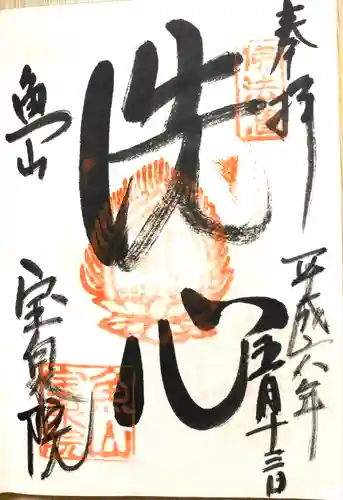 奉拝
平成二六年
五月十三日
洗心
魚山
宝泉院